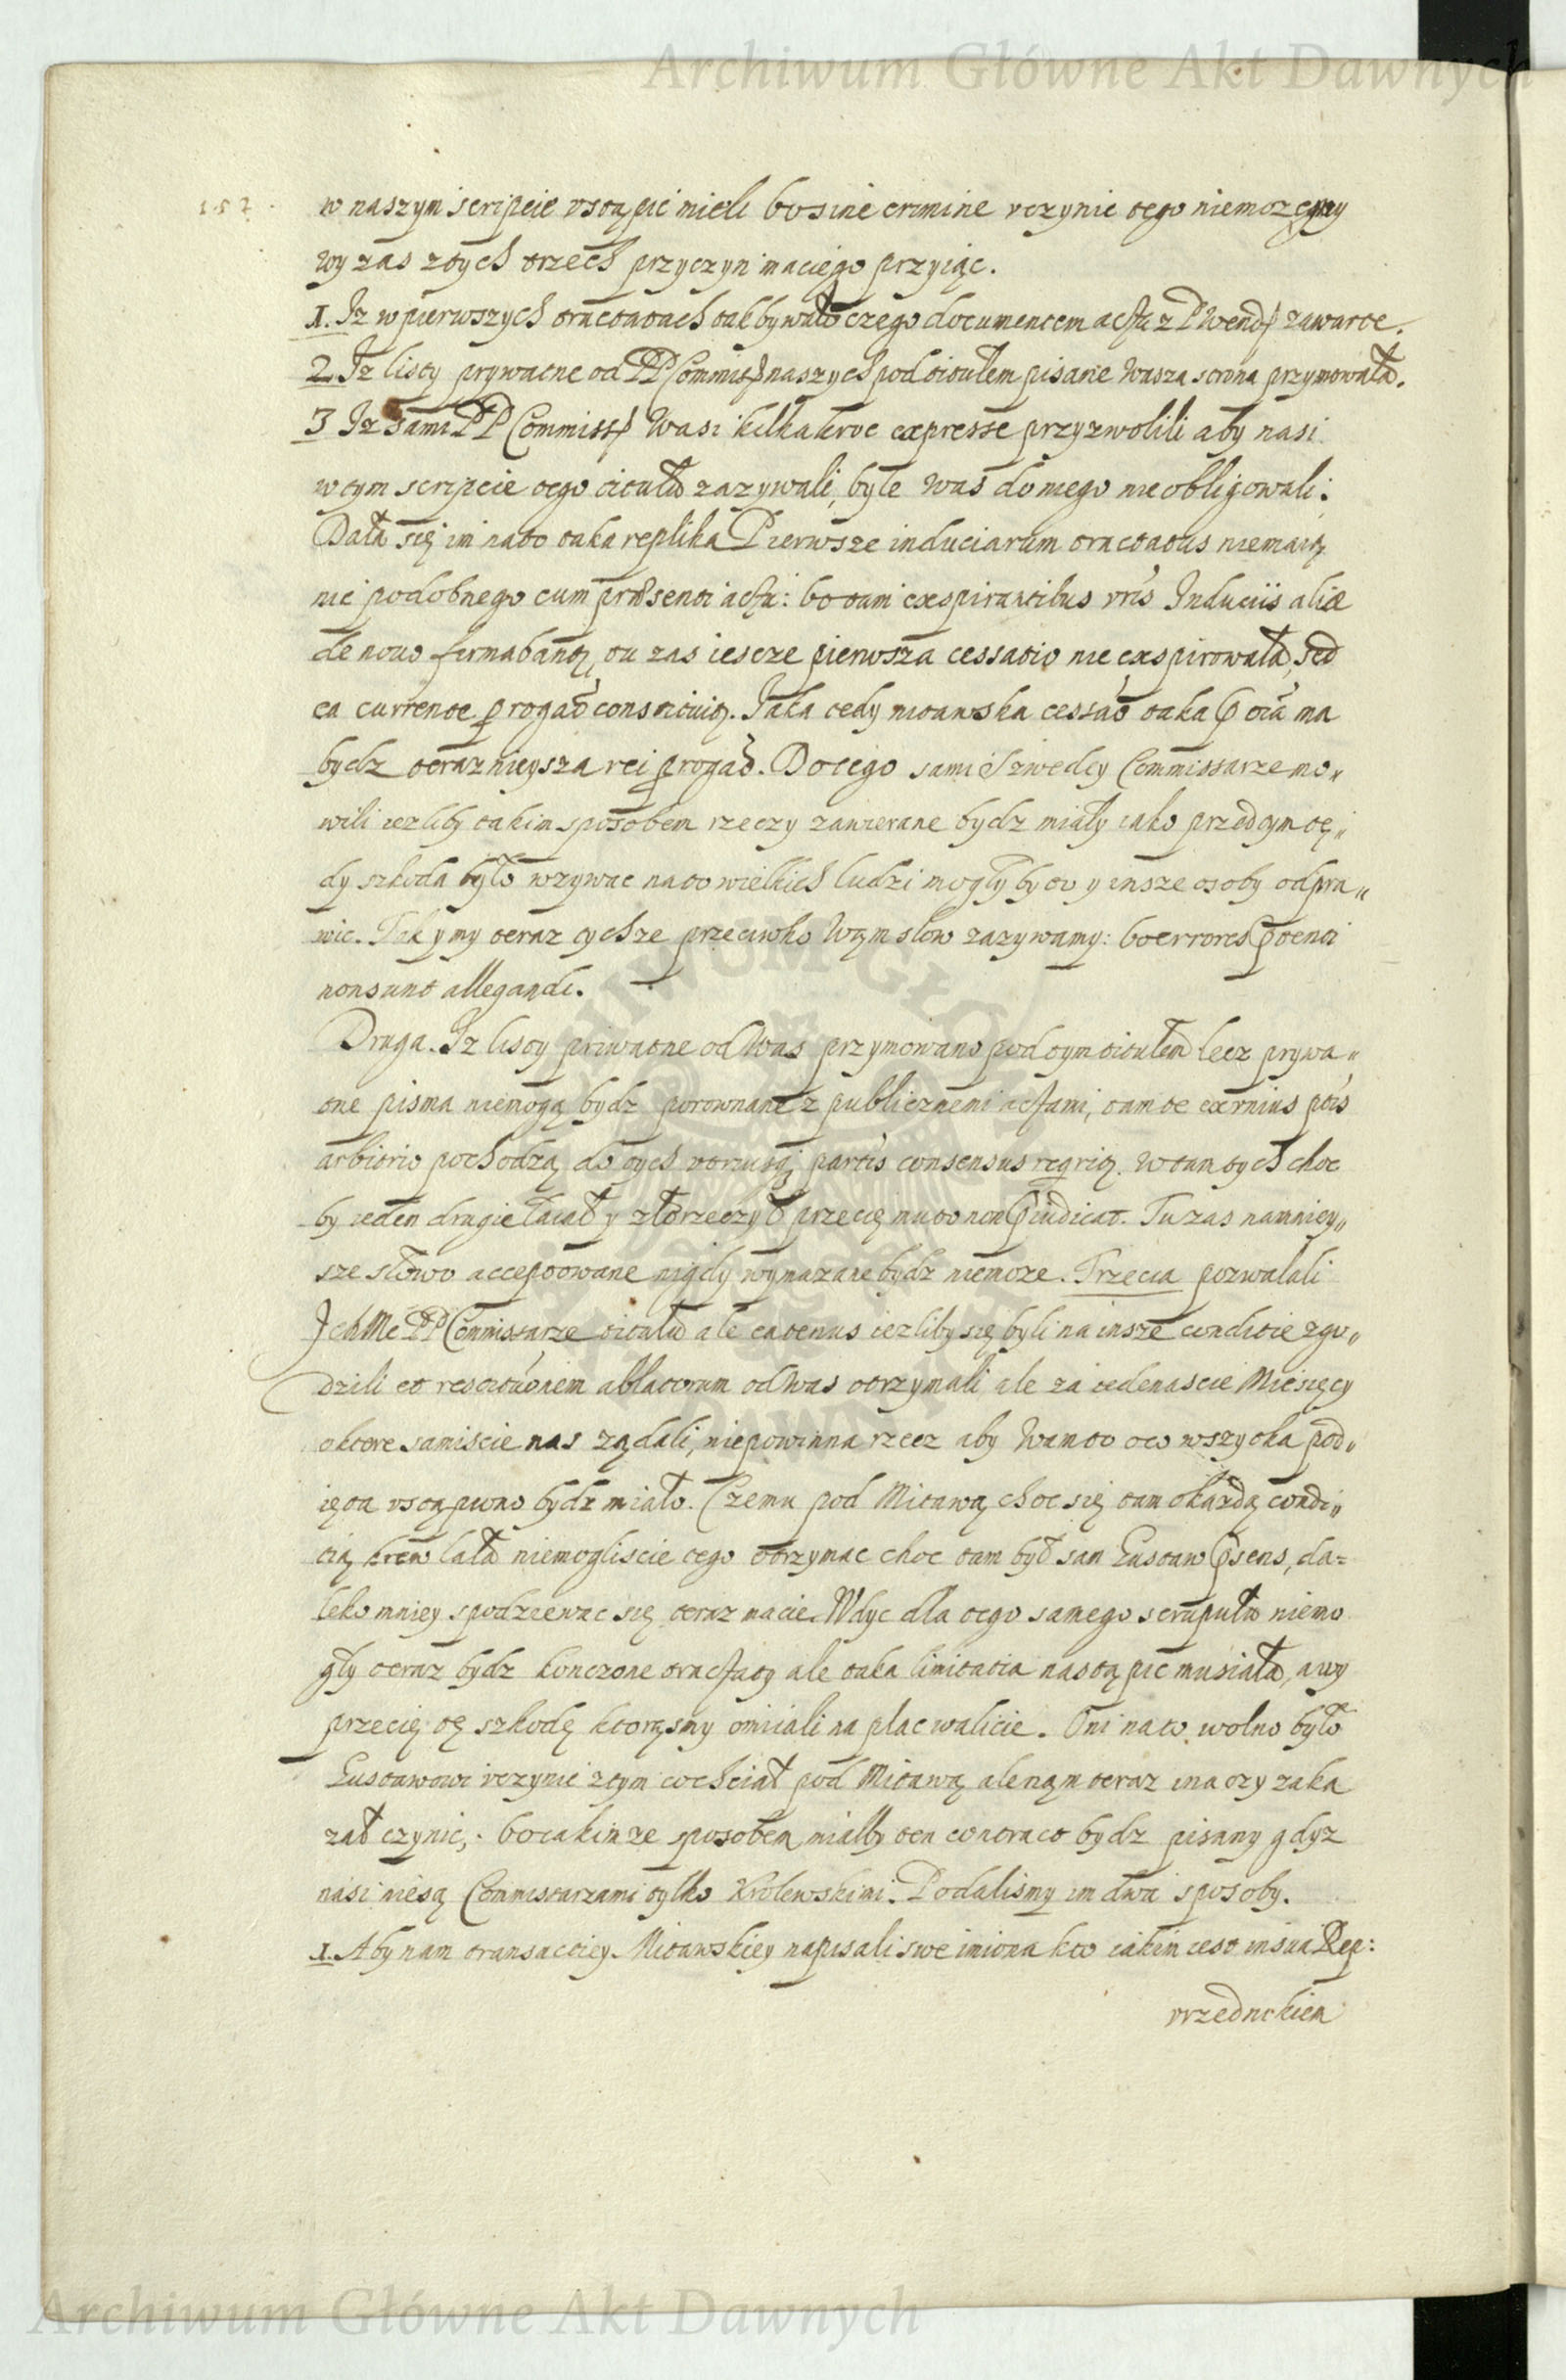 Archiwum Główne Akt Dawnych
157. w naszym scripcie ustąpić mieli bo sine crimine uczynic tego niemożemy
wy zas z tych trzech przyczyn macie go przyiąc.
1. Iz w pierwszych tractatach tak bywało czego documentem acta z P Wend/ zawarte.
2. Iz listy prywatne od PP Commiss/ naszych pod titułem pisane Wasza strona przymowała.
3 Iz sami PP Commiss/ Wasi kilkakroc expresse przyzwolili aby nasi
w tym scripcie tego titułu zazywali, byle was do niego nie obligowali:
Dała się im na to taka replika Pierwsze induciarum tractatus niemaią
nic podobnego cum præsenti actu: bo tam exspirantibus prīs Induciis aliæ
de nouo firmabantꝫ, tu zas iescze pierwsza cessatio nie exspirowała, sed
ea currente ꝓrogaō constituitꝫ. Jaka tedy mitawska cessaō taka ꝑ oiā ma
bydz teraznieysza rei ꝓrogaō. Do tego sami Szwedcy Commissarze mo„
wili iezliby takim sposobem rzeczy zawierane bydz miały iako przed tym tę„
dy szkoda było wzywac na to wielkich ludzi mogłyby to y insze osoby odpra„
wic. Tak y my teraz tychze przeciwko Wąm słow zazywamy: bo errores ꝑtenti
non sunt allegandi.
Druga. Iz listy priwatne od Was przymowano pod tym titułem lecz prywa„
tne pisma niemogą bydz porownane z publicznemi actami, tam te ex unius ptis
arbitrio pochodzą, do tych utriusqꝫ partis consensus reqritꝫ. W tamtych choc
by ieden drugie łaiał y złorzeczył przecię mu to non ꝑiudicat. Tu zas namniey„
sze słowo acceptowane nigdy wymazane bydz niemoze. Trzecia pozwalali
Ich Mć PP Commissarze titułu ale eatenus iezliby się byli na insze conditie zgo„
dzili et restitutionem ablatorum od was otrzymali, ale za iedenascie Miesięcy
o ktore samiscie nas ządali, niepowinna rzecz aby Wam to oto wszytka pod„
ięta ustąpiono bydz miało. Czemu pod Mitawą choc się tam o kazdą condi„
tią krew lała niemogliscie tego otrzymac choc tam był sam Gustaw ꝑsens, da=
leko mniey spodziewac się teraz macie. Wdyc dla tego samego scrupułu niemo
gły teraz bydz konczone tractaty ale taka limitatia nastąpic musiała, a wy
przecię tę szkodę ktorąsmy omiiali na plac walicie. Oni na to. wolno było
Gustawowi uczynic z tym co chciał pod Mitawą, ale nąm teraz inaczy zaka
zał czynic,: bo iakimze sposobem miałby ten contract bydz pisany gdyz
nasi niesą Commissarzami tylko Krolewskimi. Podalismy im dwa sposoby.
1. Aby nam transactiey Mitawskiey napisali swe imiona kto iakim iest in sua Rep:
urzednikiem
Archiwum Główne Akt Dawnych